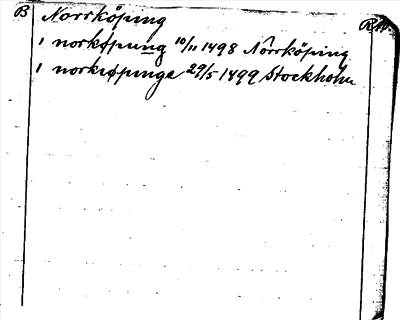 B Norrköping RA.
1 norkøpung 10/11 1498 Norrköping
1 norkiøpinge 29/5 1499 Stockholm